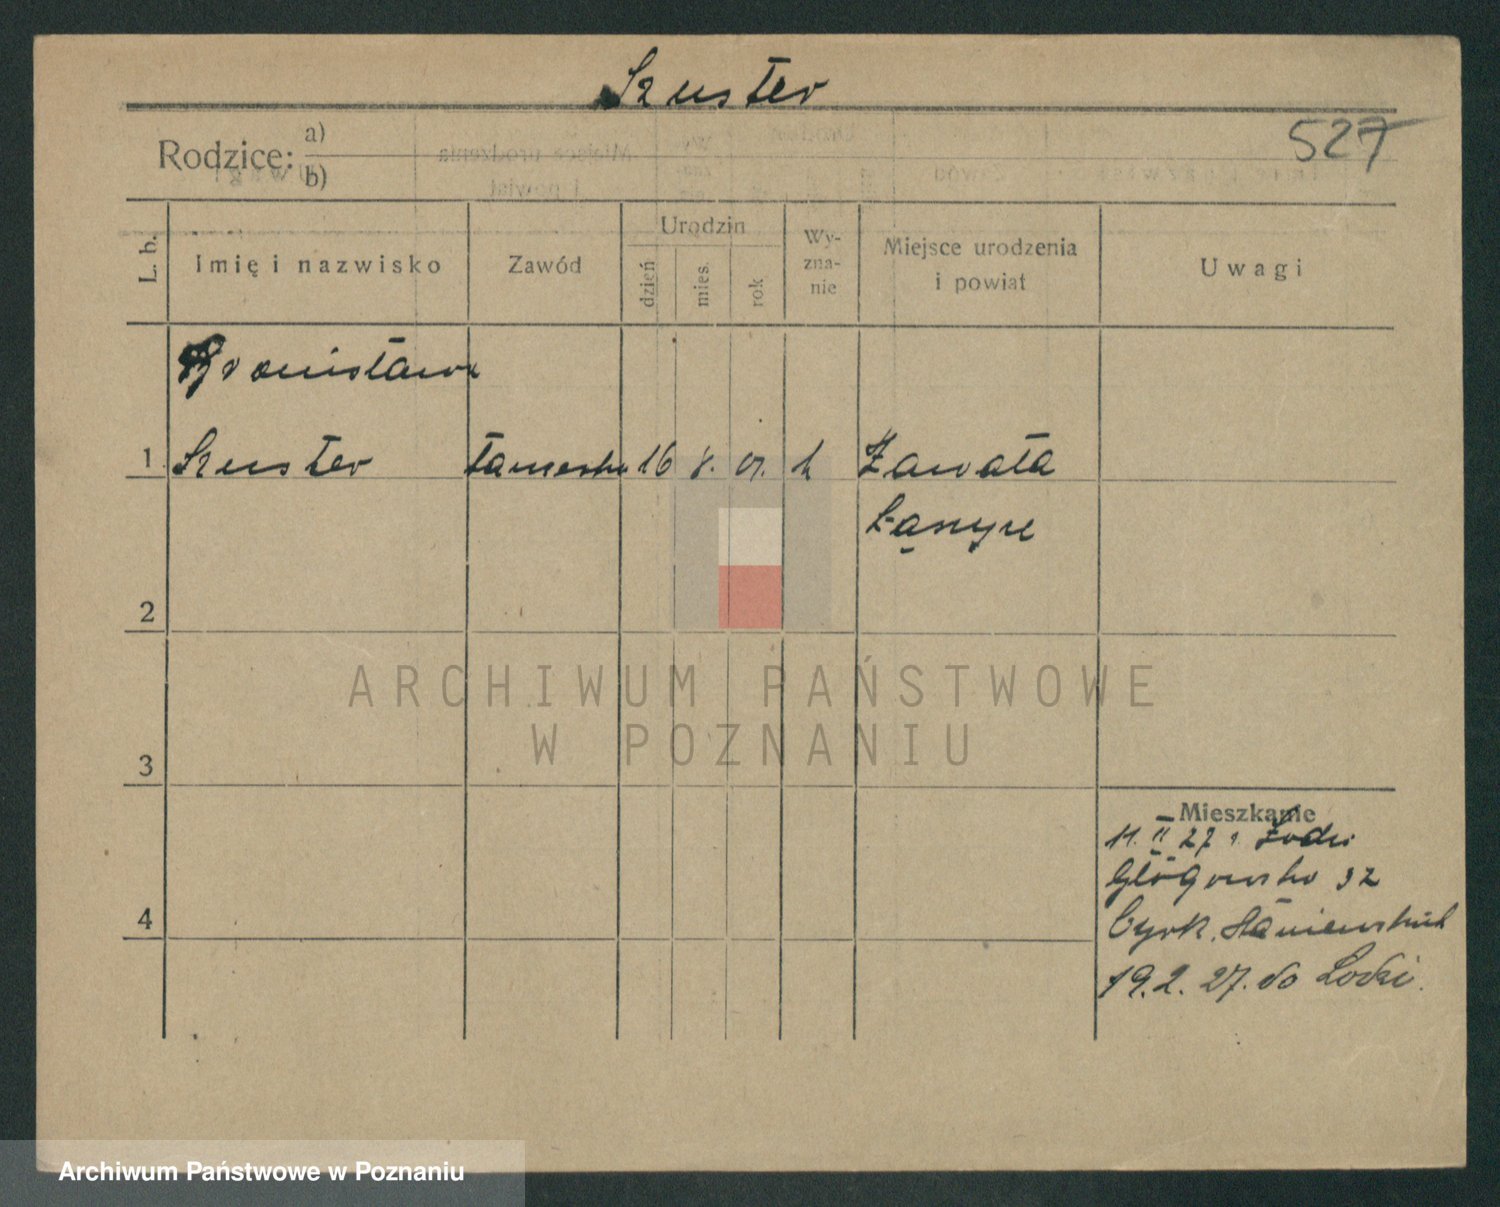 Szuster
527
Rodzice: a)
b)
L. b. Imię i nazwisko Zawód Urodzin dzień mies. rok Wy-zna-nie Miejsce urodzenia i powiat Uwagi
Bronisława
1 Szuster 16 8. 01. Zawała
2
3
Mieszkanie
11. II 27 z Łodzi
Głogowska 32
4 Cyrk. Staniewskich
19.2.27. do Łodzi.
ARCHIWUM PAŃSTWOWE
W POZNANIU
Archiwum Państwowe w Poznaniu